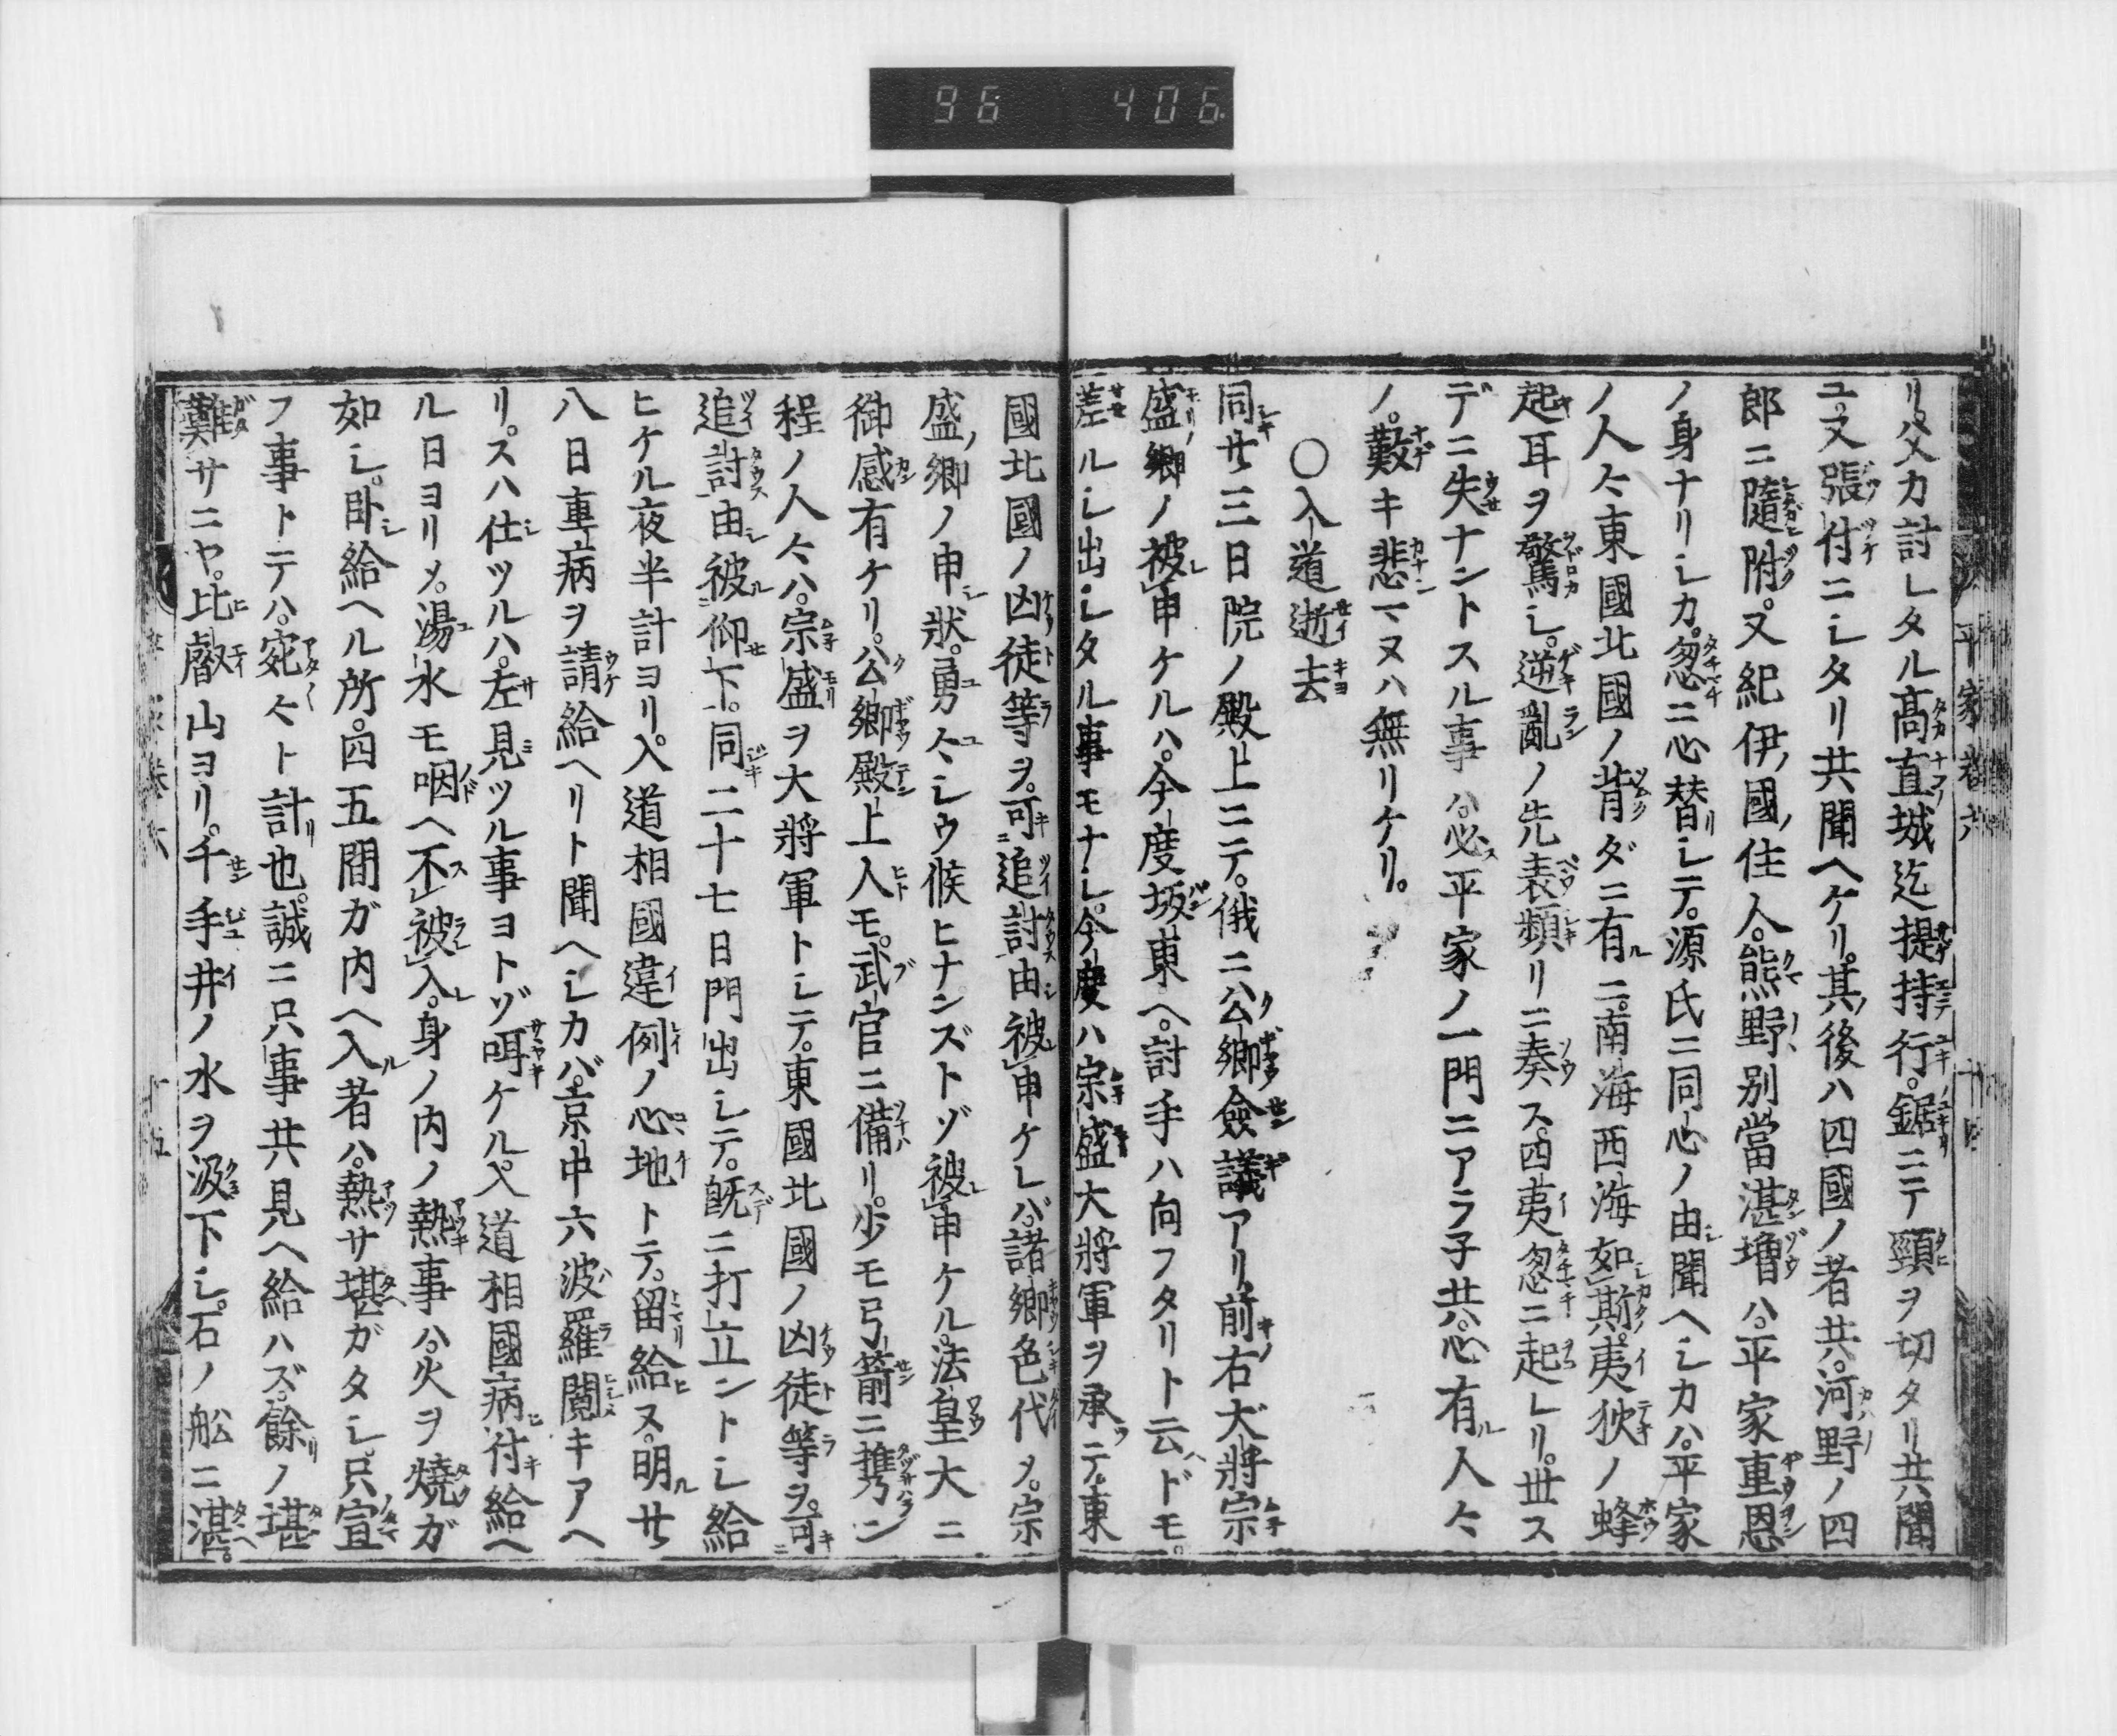 96 406
平家巻六 十四
リ。父カ討レタル高直城迄提持行。鋸ニテ頸ヲ切タリ共聞
ユ。又張付ニシタリ共聞ヘケリ。其後ハ四國ノ者共。河野ノ四
郎ニ隨附。又紀伊國住人。熊野別當湛増ハ。平家重恩
ノ身ナリシカ。忽ニ心替シテ。源氏ニ同心ノ由聞ヘシカハ。平家
ノ人々東國北國ノ背ダニ有ニ。南海西海如斯。夷狄ノ蜂
起耳ヲ驚シ。逆亂ノ先表頻リニ奏ス。四夷忽ニ起レリ。世ス
デニ失ナントスル事ハ。必平家ノ一門ニアラ子共。心有人々
ノ。歎キ悲マヌハ無リケリ。
〇入道逝去
同廿三日院ノ殿上ニテ。俄ニ公卿僉議アリ。前右大將宗
盛卿ノ被申ケルハ。今度坂東ヘ。討手ハ向フタリト云ドモ。
差ルシ出シタル事モナシ。今度ハ宗盛大將軍ヲ承テ。東
國北國ノ凶徒等ヲ。可追討由被申ケレバ。諸卿色代メ。宗
盛卿ノ申狀。勇々シウ候ヒナンズトゾ被申ケル。法皇大ニ
御感有ケリ。公卿殿上人モ。武官ニ備リ。少モ弓箭ニ携ン
程ノ人々ハ。宗盛ヲ大將軍トシテ。東國北國ノ凶徒等ヲ。可
追討由被仰下。同二十七日門出シテ。既ニ打立ントシ給
ヒケル夜半計ヨリ。入道相國違例ノ心地トテ。留給ヒヌ。明廿
八日重病ヲ請給ヘリト聞ヘシカバ。京中六波羅鬩キアヘ
リ。スハ仕ツルハ。左見ツル事ヨトゾ咡ケル。入道相國病付給ヘ
ル日ヨリメ。湯水モ咽ヘ不被入。身ノ内ノ熱事ハ。火ヲ燒ガ
如シ。卧給ヘル所。四五間ガ内ヘ入者ハ。熱サ堪ガタシ。只宣
フ事トテハ。宛々ト計也。誠ニ只事共見ヘ給ハズ。餘ノ堪
難サニヤ。比叡山ヨリ。千手井ノ水ヲ汲下シ。石ノ舩ニ湛。
平家巻六 十五